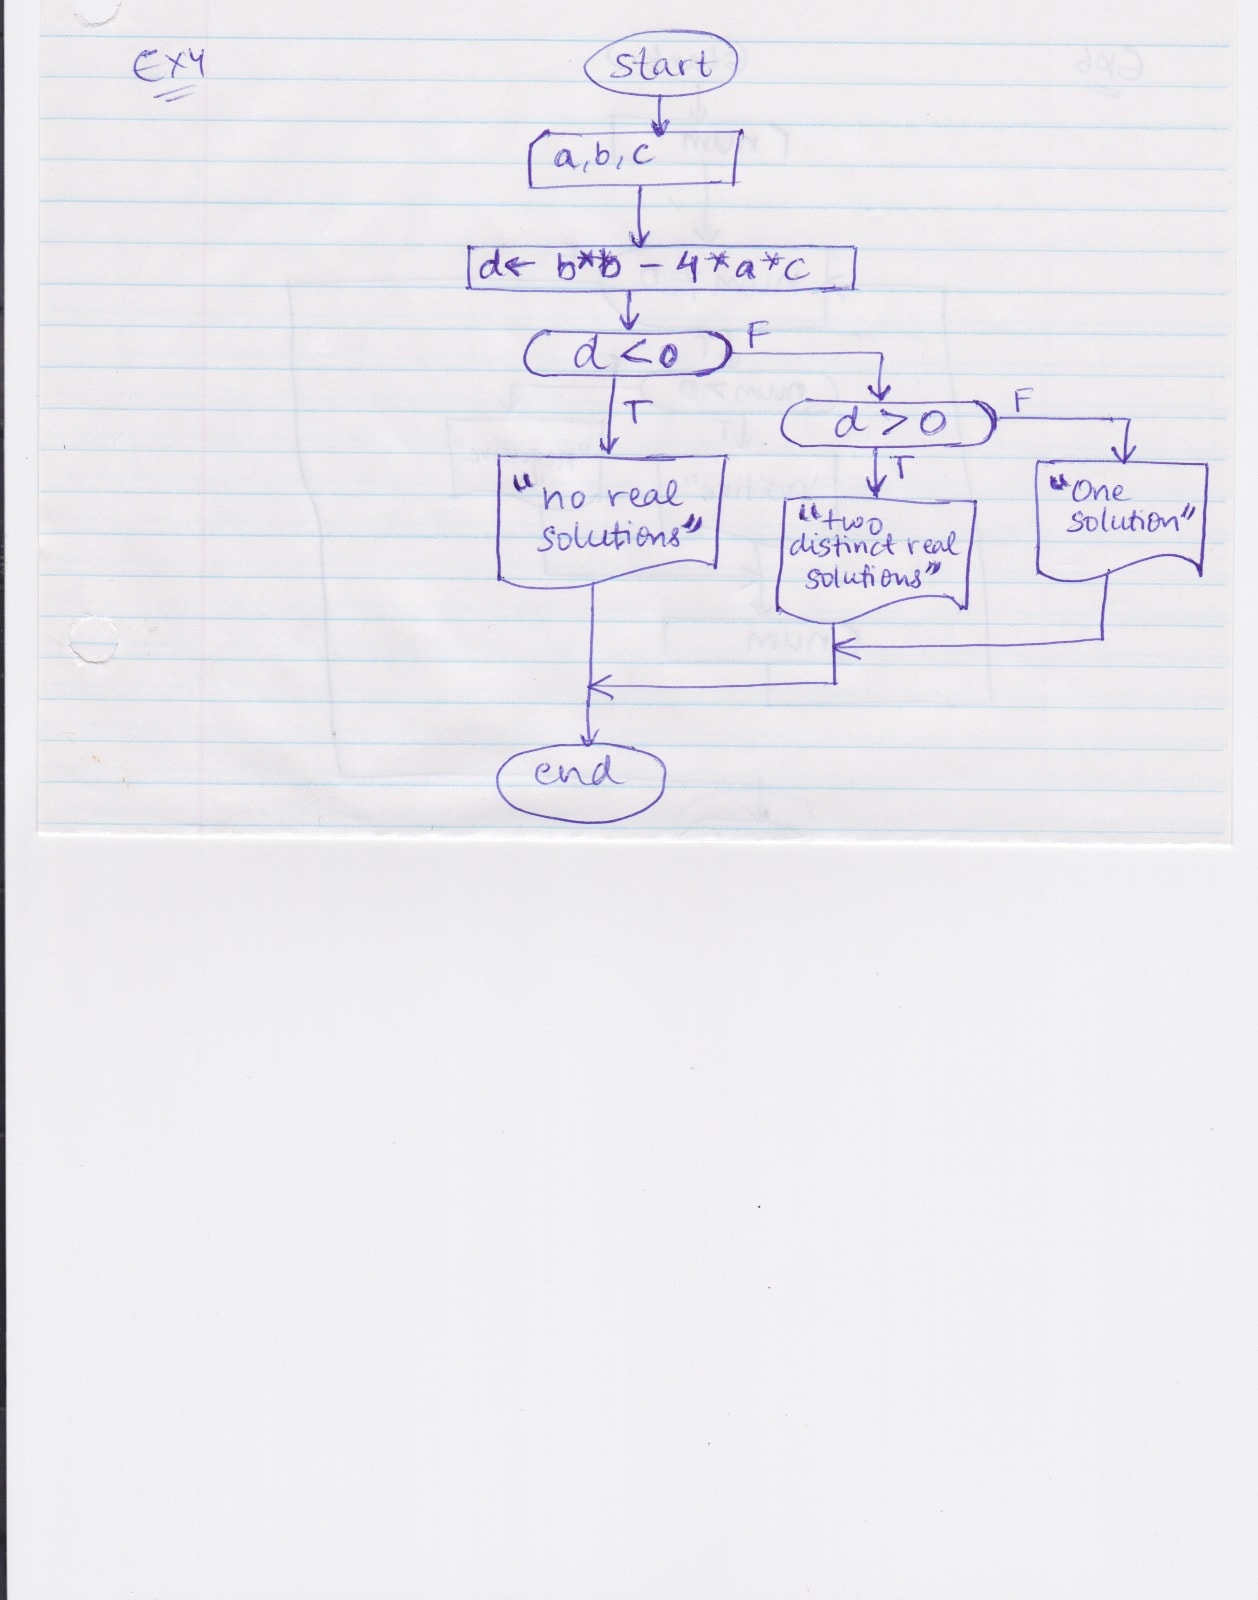 Ex4
start
a,b,c
d← b*b - 4*a*c
d<0
F
T
d>0
F
T
"no real
solutions"
"two
distinct real
solutions"
"One
solution"
end